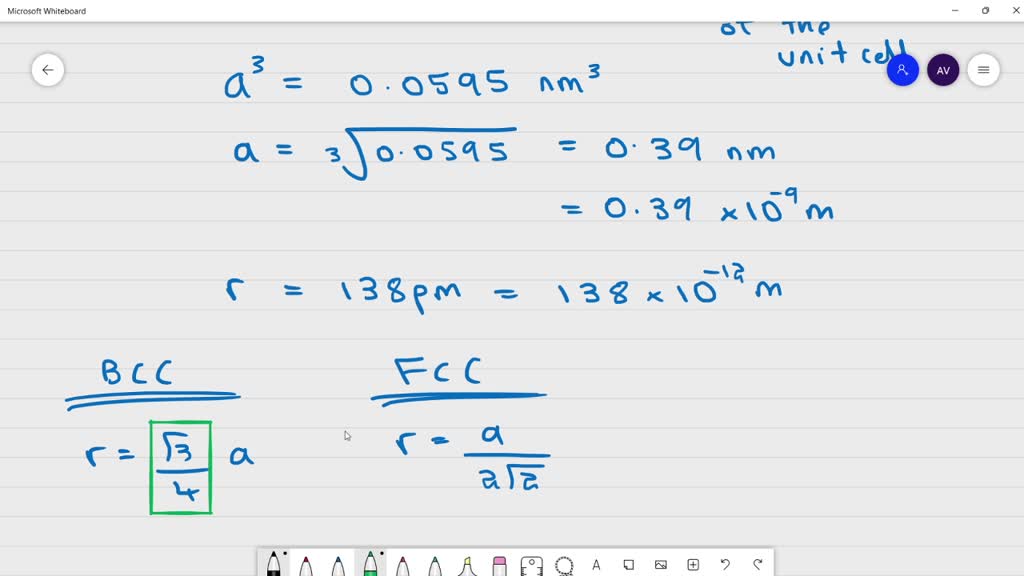 Microsoft Whiteboard
of the
unit cell
AV
a³ = 0.0595 nm³
a = ³√0.0595 = 0.39 nm
= 0.39 × 10⁻⁹ m
r = 138 pm = 138 × 10⁻¹² m
BCC FCC
r = √3/4 a r = a/2√2
A